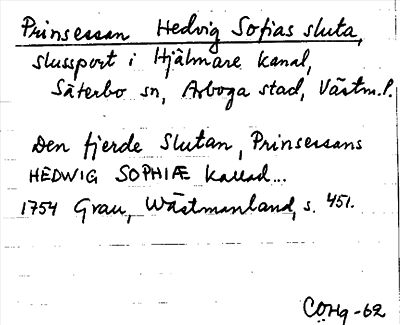 Prinsessan Hedvig Sofias sluta,
slussport i Hjälmare kanal,
Säterbo sn, Arboga stad, Västm.l.
Den fjerde Slutan, Prinsessans
HEDWIG SOPHIÆ kallad...
1754 Grau, Wästmanland, s. 451.
CÖHg-62